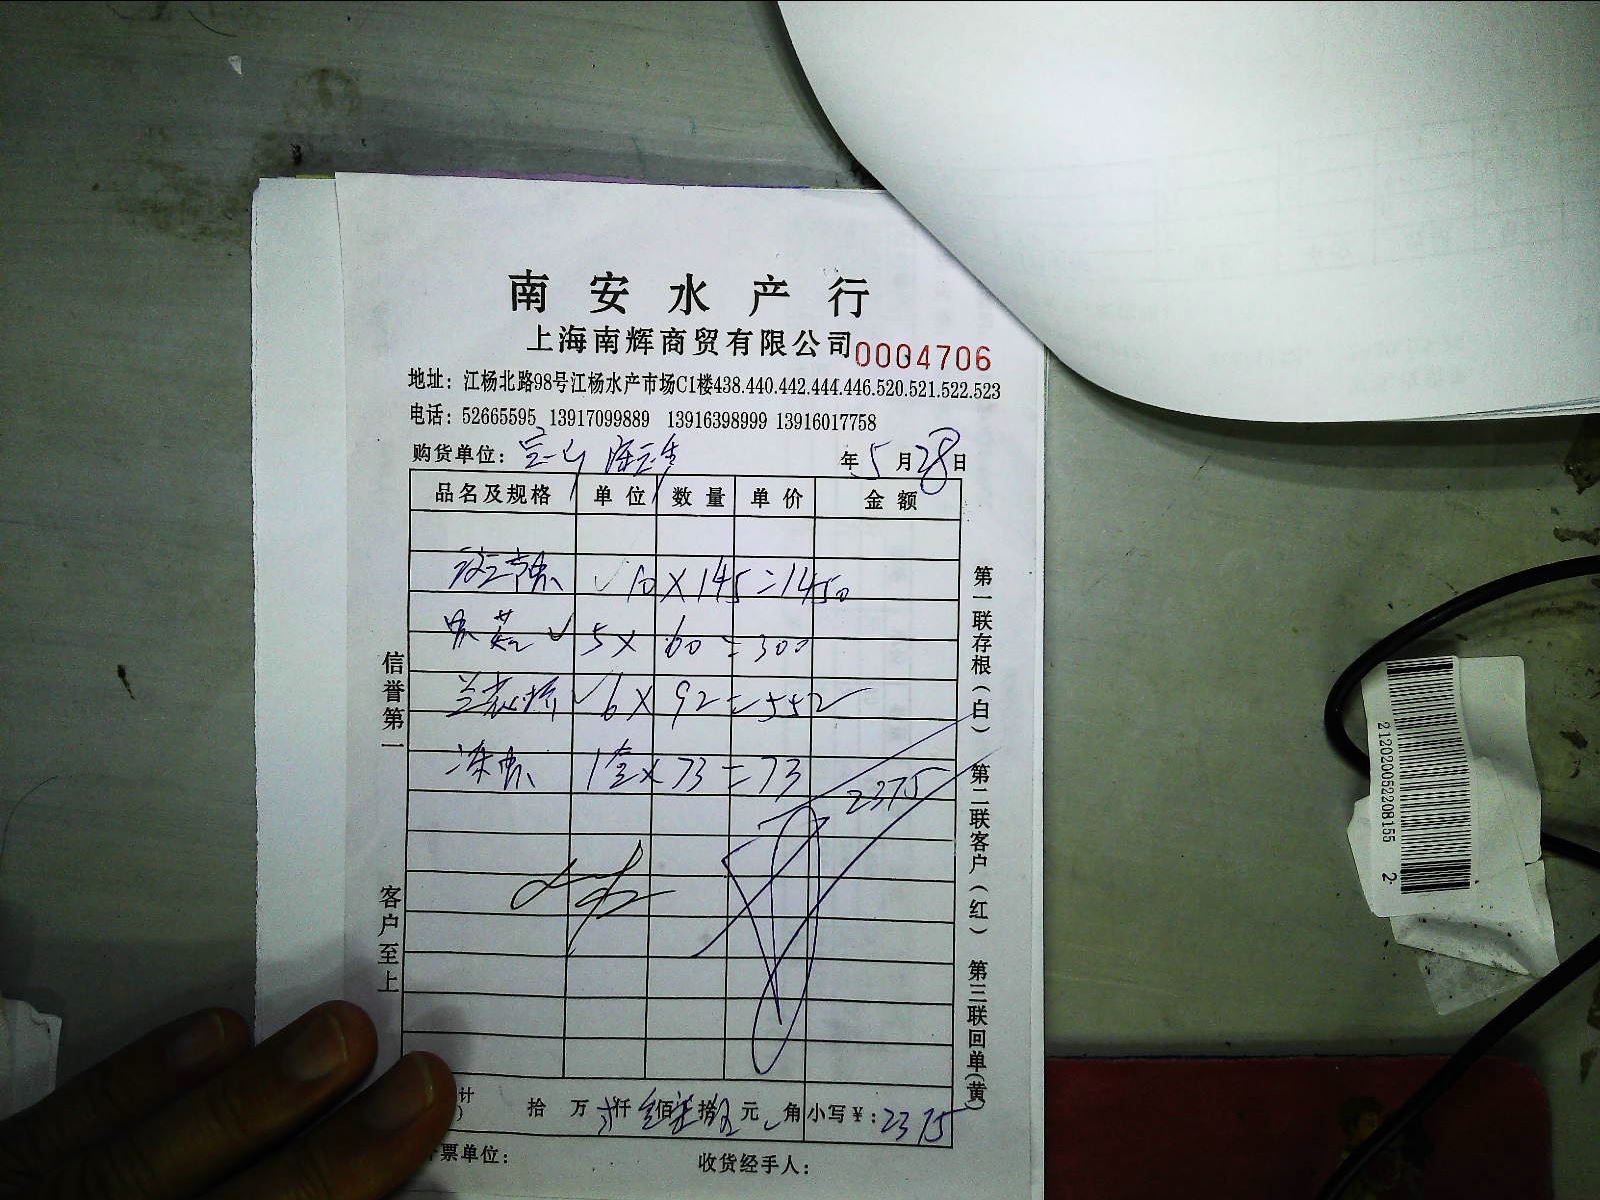 南安水产行
上海南辉商贸有限公司 0004706
地址：江杨北路98号江杨水产市场C1楼438.440.442.444.446.520.521.522.523
电话：52665595 13917099889 13916398999 13916017758
购货单位：宝山 年5月28日
品名及规格 单位 数量 单价 金额
10×145=1450
5×60=300
6×92=552
1盒×73=73
2375
计 拾 万 贰仟 叁佰柒拾伍元 角 小写￥：2375
票单位： 收货经手人：
信誉第一 客户至上
第一联存根（白） 第二联客户（红） 第三联回单（黄）
2120200522208155 2